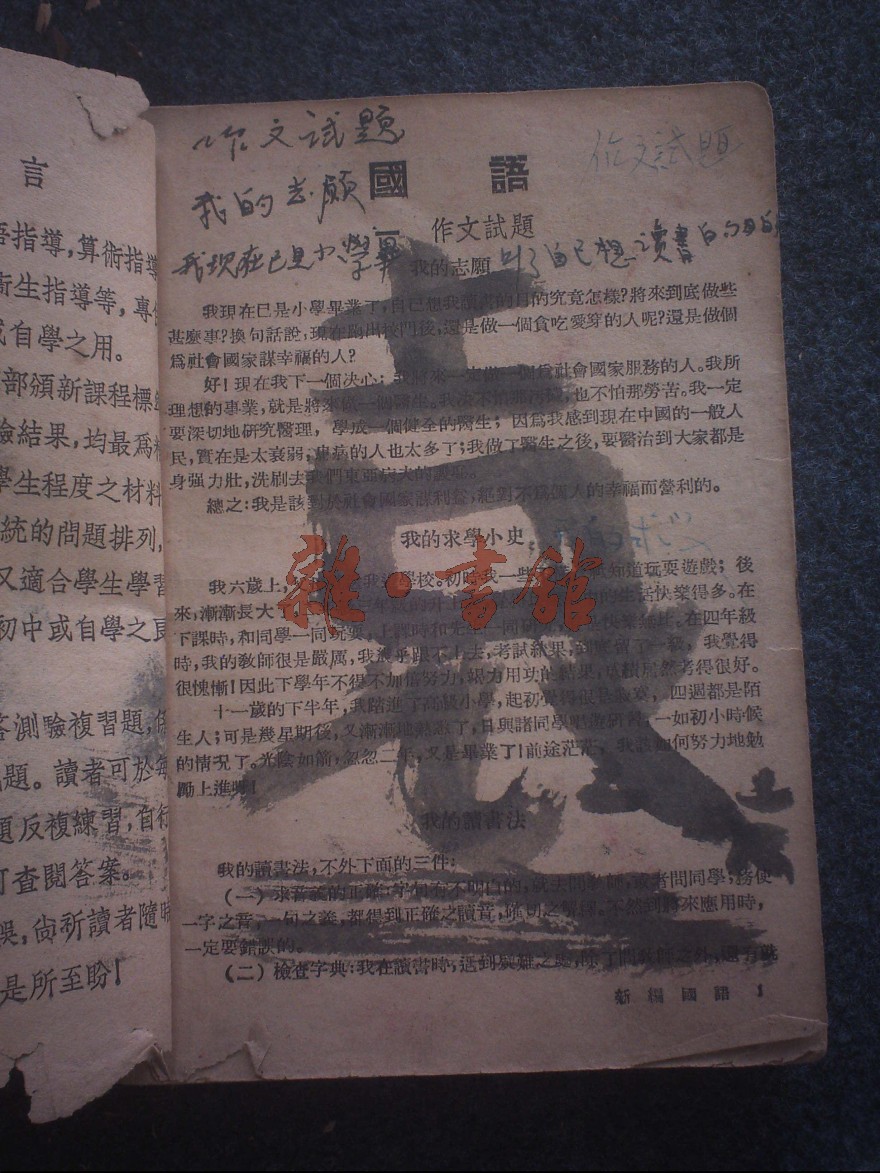 言
語指導,算術指導
衛生指導等,專
或自學之用。
部頒新課程標
驗結果,均最爲
學生程度之材料
統的問題排列,
又適合學生學習
初中或自學之良
答測驗複習題,
題。讀者可於每
題反複練習,自行
可查閱答案。
誤,尙祈讀者隨時
是所至盼!
作文試題
作文試題
國語
我的志願
一 作文試題
我現在已是小學畢
自己想讀書的目的
我的志願
我現在已是小學畢業了,自己想我讀書的目的究竟怎樣?將來到底做些
甚麼事?換句話說,現在踏出校門後,還是做一個貪吃愛穿的人呢?還是做個
爲社會國家謀幸福的人?
好!現在我下一個決心:我將來一定做一個爲社會國家服務的人。我所
理想的事業,就是將來做一個醫生。我決不怕那,也不怕那勞苦。我一定
要深切地硏究醫理,學成一個健全的醫生;因爲我感到現在中國的一般人
民,實在是太衰弱,的人也太多了;我做了醫生之後,要醫治到大家都是
身强力壯,洗刷去我們東亞病夫的
總之:我是該對於社會國家謀利益,絕對不爲個人的幸福而營利的。
我的求學小史
我六歲上,我進學校。初時我一些知道玩耍遊戲;後
來,漸漸長大了,的生活快樂得多。在
下課時,和同學一同玩耍,上課時和先生一同是快樂。在四年級
時,我的敎師很是嚴厲,我幾乎跟不上去,考試結果,到底留了一級,我覺得
很愧慚!因此下學年不得不加倍努力,竭力用功的結果,成績居然考得很好。
十一歲的下半年,我踏進了高級小學,起初覺得很是寂寞,四週都是陌
生人;可是幾星期後,又漸漸地熟識了,且與諸同學硏習,一如初小時候
的情况了。光陰如箭,忽忽二年,又是畢業了!前途茫茫,我該如何努力地勉
勵上進啊!
我的讀書法
我的讀書法,不外下面的三件:
(一) 求音義的正確:字句有不明白的,就去問敎師,或者問同學;務使
一字之音,一句之義,都得到正確之讀音,確切之解釋。不然到將來應用時,
一定要錯誤的。
(二) 檢查字典:我在讀書時,遇到疑難之處,除了問敎師之外,還有就
新編國語 1
雜·書館